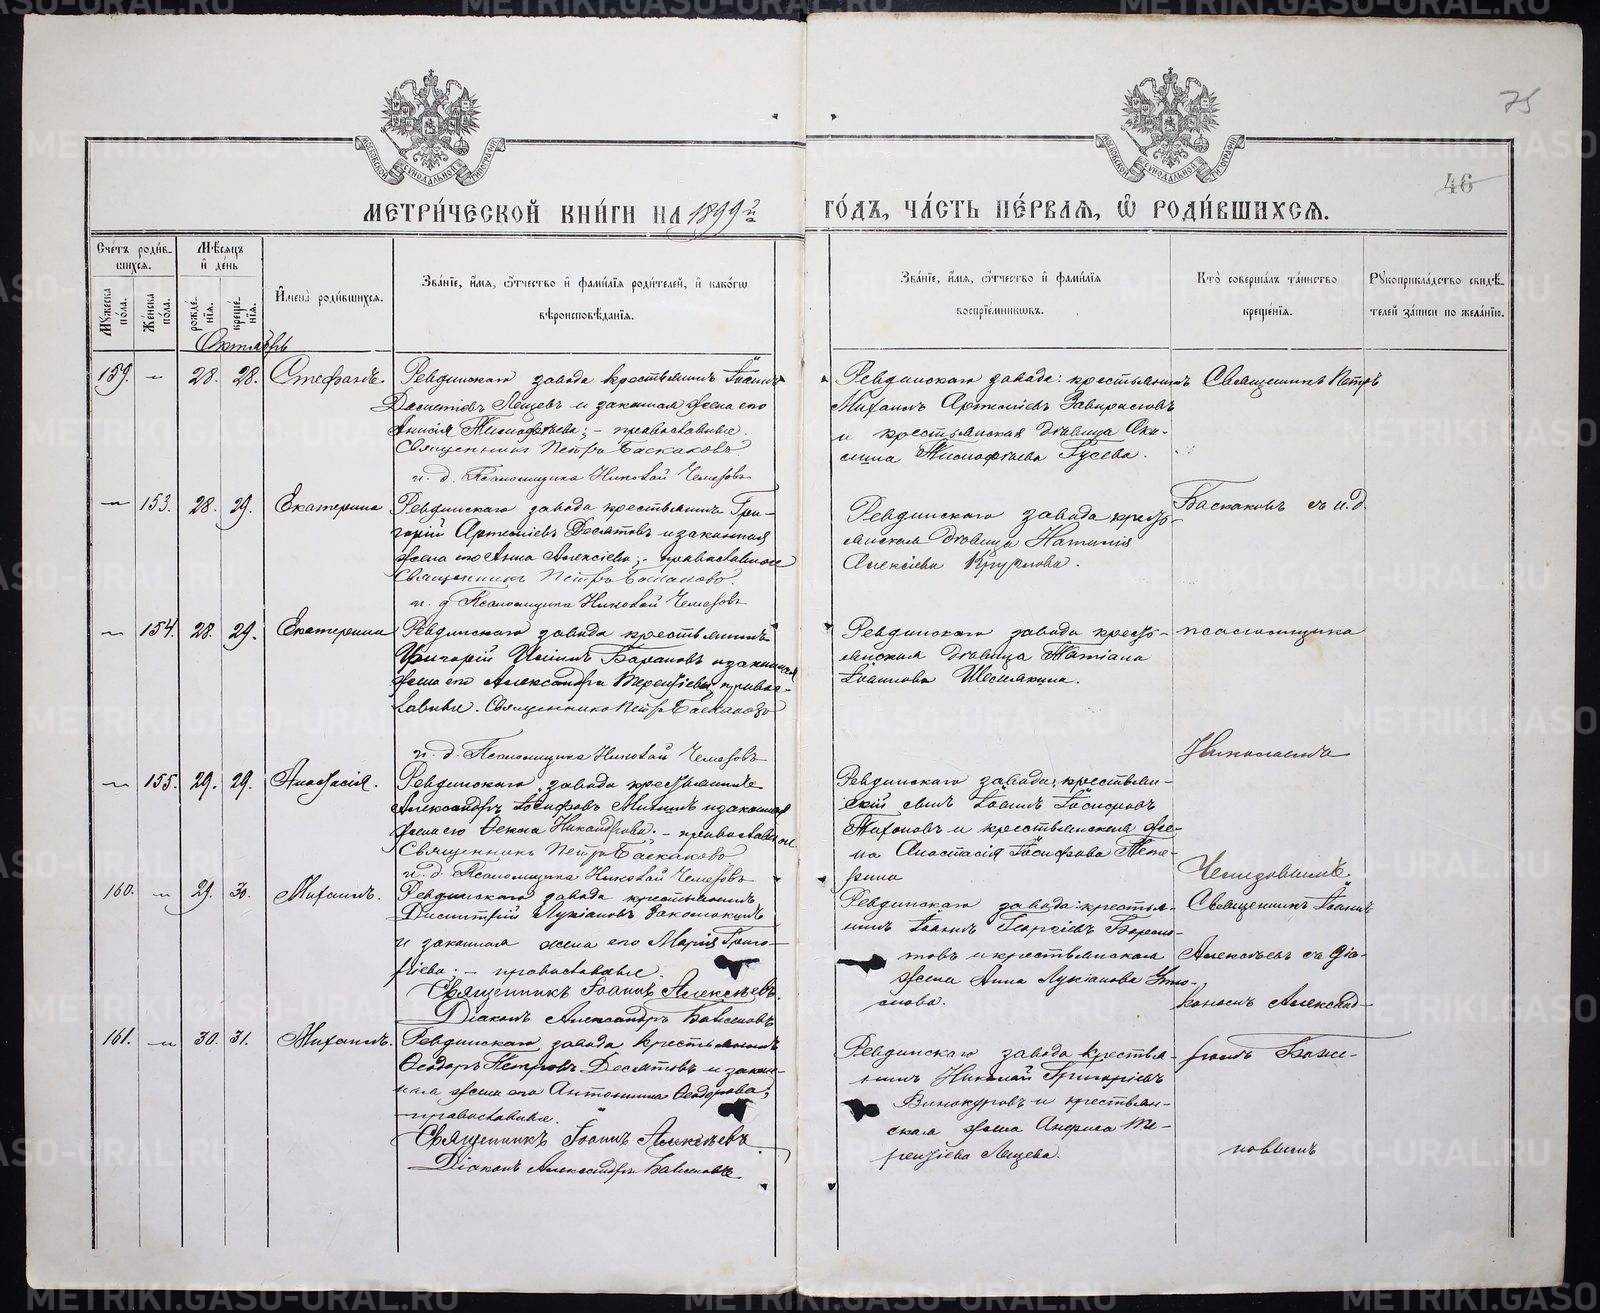 75
46
МЕТРИ́ЧЕСКОЙ КНИ́ГИ НА 1899й
ГО́ДЪ, ЧА́СТЬ ПЕ́РВАЯ, Ѽ РОДИ́ВШИХСЯ.
Сче́тъ роди́вшихся.
Му́жеска по́ла.
Же́нска по́ла.
Мѣ́сяцъ и де́нь
рожде́нїя.
креще́нїя.
И҆мена̀ роди́вшихся.
Зва́нїе, и҆́мя, ѻ҆́тчество и҆ фами́лїя роди́телей, и҆ како́гѡ
вѣроисповѣ́данїя.
Зва́нїе, и҆́мя, ѻ҆́тчество и҆ фами́лїя
воспрїе́мникѡвъ.
Кто̀ соверша́лъ та́инство
креще́нїя.
Рꙋкоприкла́дство свидѣ́телей за́писи по жела́нїю.
Октябрь
159. — 28. 28. Стефанъ.
Ревдинскаго завода крестьянинъ Іоаннъ
Лещевъ и законная жена его
Анисія Тимофѣева; – православные.
Священникъ Петръ Баскаковъ
и. д. Псаломщика Николай
Ревдинскаго завода: крестьянинъ
Михаилъ Артеміевъ
и крестьянская дѣвица Аки-
лина Тимофѣева Гусева.
Священникъ Петръ
— 153. 28. 29. Екатерина
Ревдинскаго завода крестьянинъ Гри-
горій Артеміевъ Десятовъ и законная
жена его Анна Алексіева; – православные
Священникъ Петръ Баскаковъ.
и. д. Псаломщика Николай
Ревдинскаго завода кресть-
янская дѣвица Наталія
Алексіева
Баскаковъ съ и. д.
— 154. 28. 29. Екатерина
Ревдинскаго завода крестьянинъ
Григорій Барановъ и законная
жена его Александра Терентіева; правос-
лавные. Священникъ Петръ Баскаковъ
и. д. Псаломщика Николай
Ревдинскаго завода кресть-
янская дѣвица Татіана
Іоаннова
псаломщика
Николаемъ
— 155. 29. 29. Анастасія.
Ревдинскаго завода крестьянинъ
Александръ Іосифовъ и законная
жена его Никандрова. – православные
Священникъ Петръ Баскаковъ
и. д. Псаломщика Николай
Ревдинскаго завода: крестьян-
скій сынъ Іоаннъ Іосифовъ
и крестьянская же-
на Анастасія Іосифова
160. — 29. 30. Михаилъ.
Ревдинскаго завода крестьянинъ
Димитрій Лукіановъ
и законная жена его Марія Григо-
ріева; – православные.
Священникъ Іоаннъ Алексѣевъ.
Діаконъ Александръ
Ревдинскаго завода: крестья-
нинъ Іоаннъ Георгіевъ
и крестьянская
жена Анна Лукіанова
Священникъ Іоаннъ
Алексѣевъ съ діа-
кономъ Александ-
161. — 30. 31. Михаилъ.
Ревдинскаго завода крестьянинъ
Ѳеодоръ Петровъ Десятовъ и закон-
ная жена его Антонина Ѳеодорова;
православные.
Священникъ Іоаннъ Алексѣевъ
Діаконъ Александръ
Ревдинскаго завода крестья-
нинъ Николай Григоріевъ
Винокуровъ и крестьян-
ская жена Те-
рентіева Лещева.
ромъ
новымъ